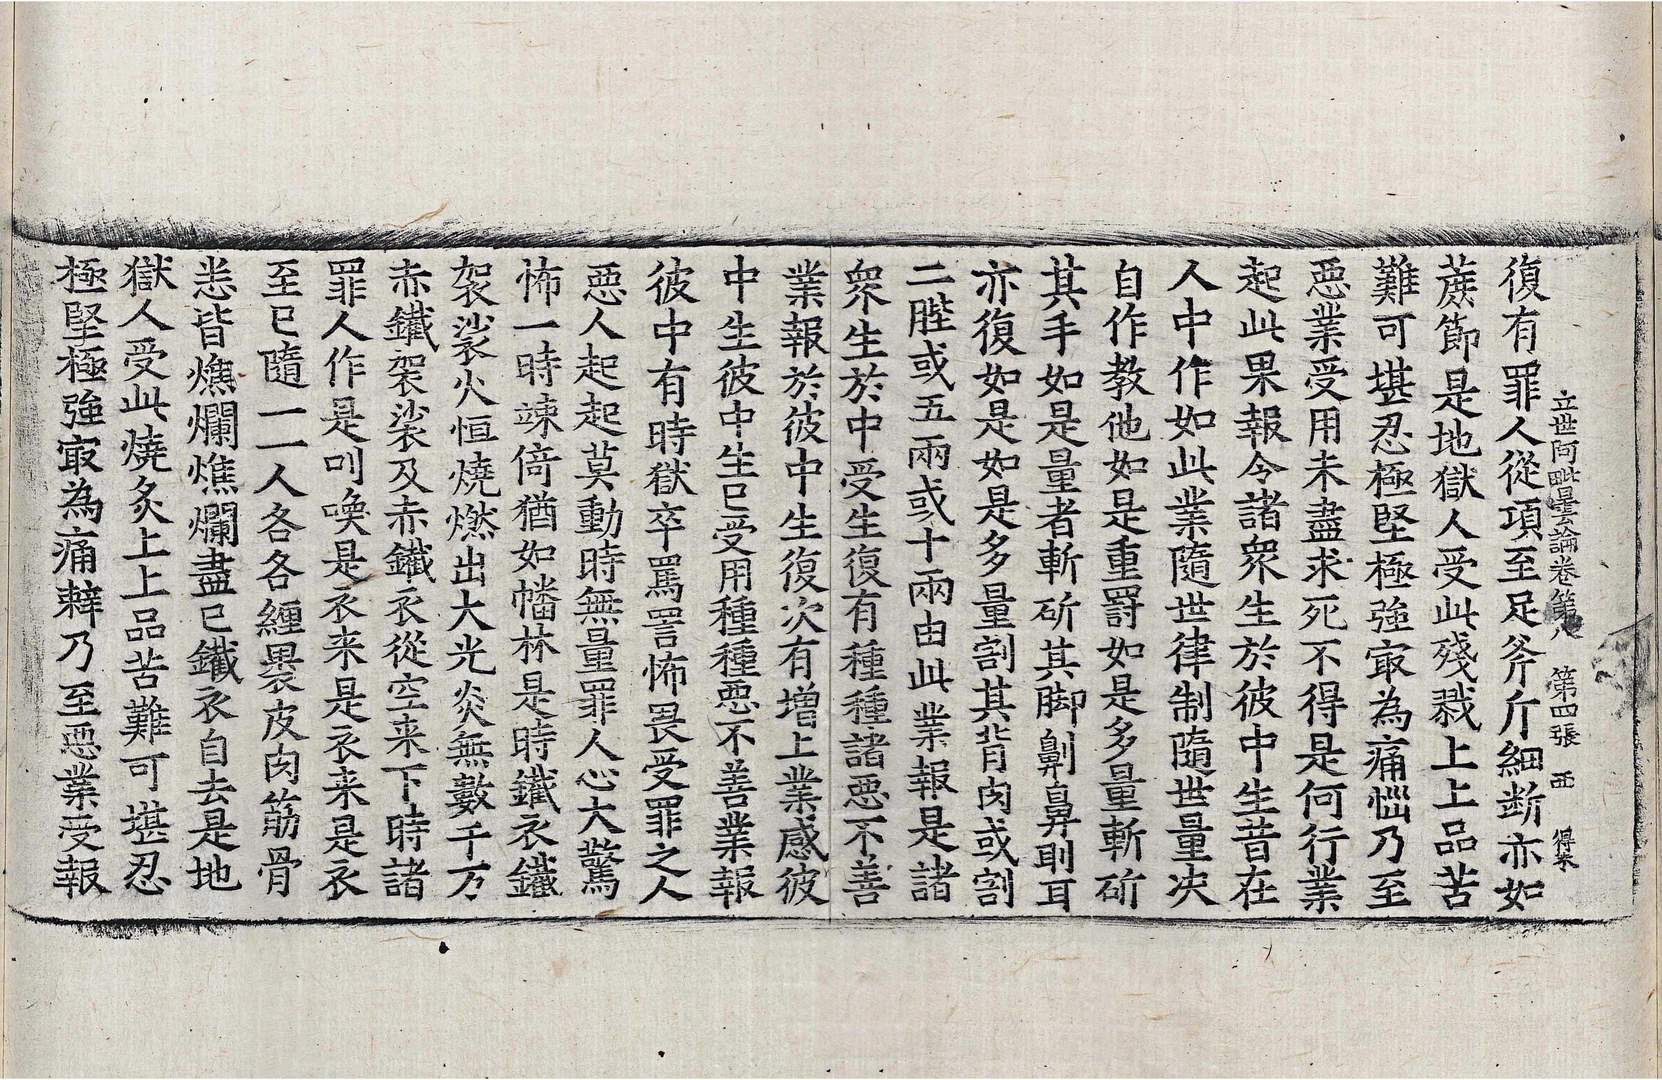 立世阿毗曇論卷第八 第四張 𠀍
復有罪人從項至足斧斤細斷亦如
蔗節是地獄人受此殘戮上上品苦
難可堪忍極堅極強㝡為痛惱乃至
惡業受用未盡求死不得是何行業
起此果報令諸衆生於彼中生昔在
人中作如此業隨世律制隨世量决
自作教他如是重罸如是多量斬斫
其手如是量者斬斫其脚劓鼻刵耳
亦復如是如是多量割其背肉或割
二䏶或五兩或十兩由此業報是諸
衆生於中受生復有種種諸惡不善
業報於彼中生復次有增上業感彼
中生彼中生已受用種種惡不善業報
彼中有時獄卒罵詈怖畏受罪之人
惡人起起莫動時無量罪人心大驚
怖一時竦倚猶如幡林是時鐵衣鐵
袈裟火恒燒燃出大光炎無數千万
赤鐵袈裟及赤鐵衣從空来下時諸
罪人作是叫喚是衣来是衣来是衣
至已隨一一人各各纏裹皮肉筋骨
悉皆燋爛燋爛盡已鐵衣自去是地
獄人受此燒炙上上品苦難可堪忍
極堅極強㝡為痛辢乃至惡業受報